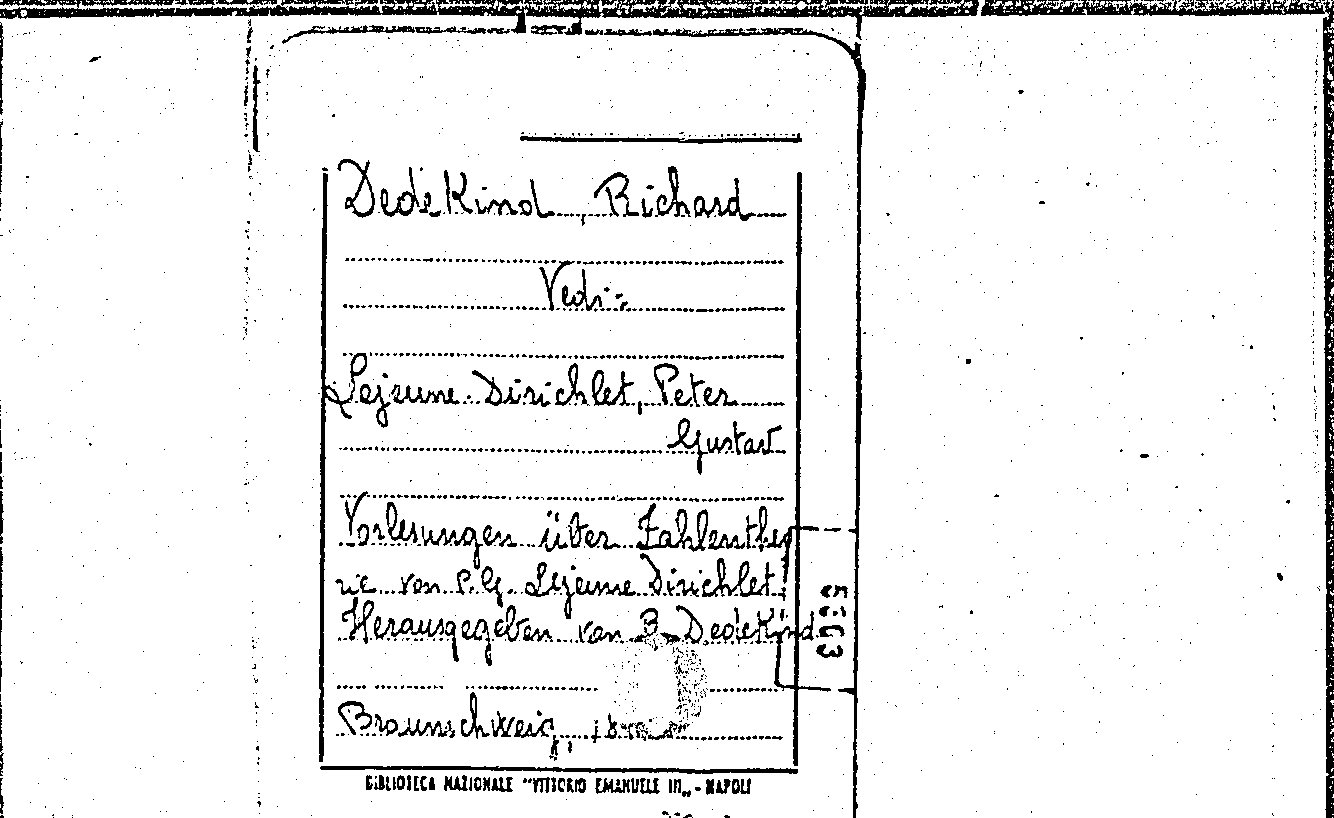 Dedekind, Richard
Vedi:
Lejeune-Dirichlet, Peter
Gustav
Vorlesungen über Zahlentheo
rie von P. G. Lejeune Dirichlet.
Herausgegeben von R. Dedekind
Braunschweig,
BIBLIOTECA NAZIONALE "VITTORIO EMANUELE III„ - NAPOLI